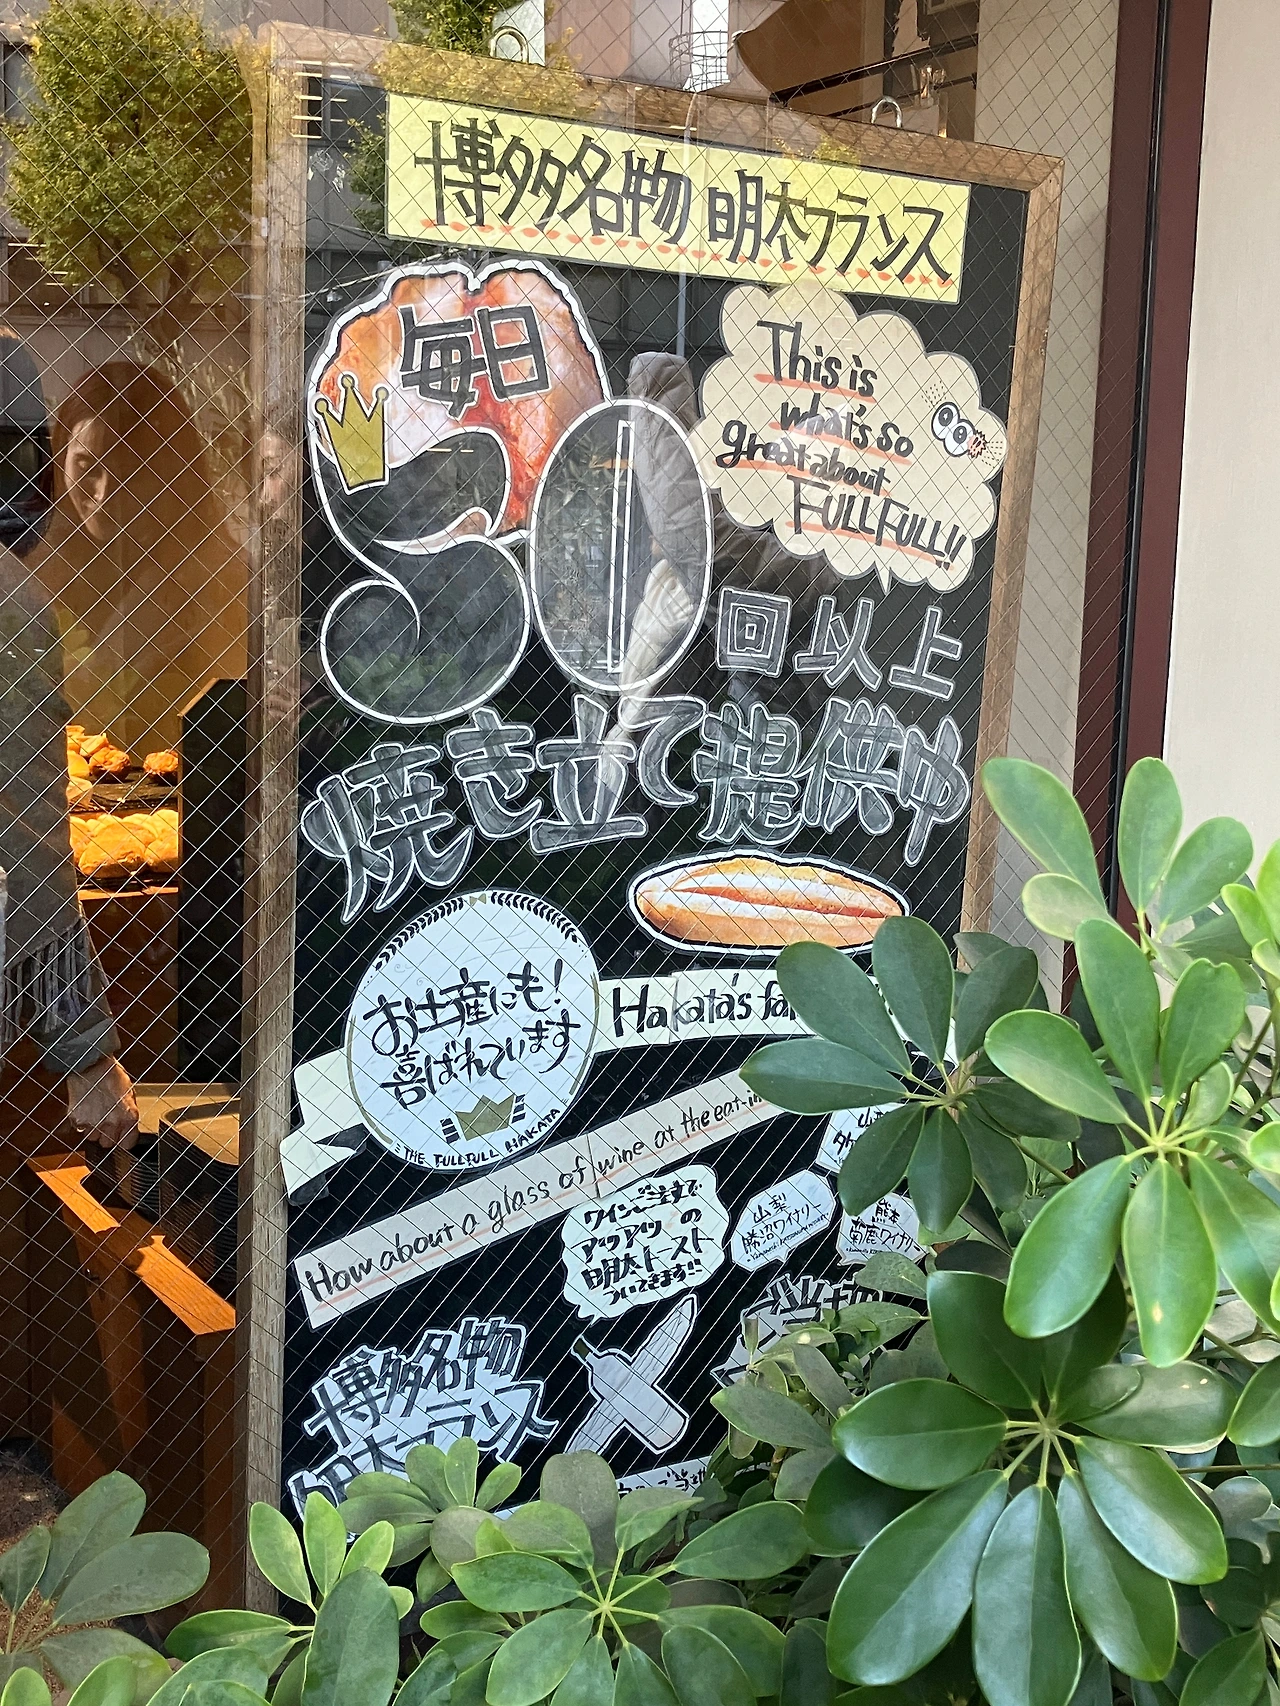 博多名物 明太フランス
毎日
50
回以上
焼き立て提供中
This is
what's so
great about
FULLFULL!!
お土産にも!
喜ばれています
THE FULLFULL HAKATA
Hakata's
How about a glass of wine at the eat-in
ワインご注文で
アツアツの
明太トースト
ついてきます!!
山梨
勝沼ワイナリー
熊本
菊鹿ワイナリー
博多名物
明太フランス